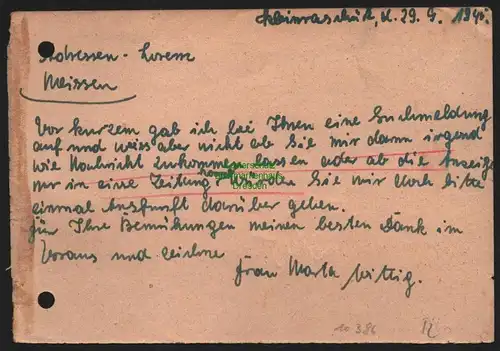 Kleinraschütz, d. 29. 9. 194
Adressen - Lorenz
Meissen
Vor kurzem gab ich bei Ihnen eine Suchmeldung
auf und weiss aber nicht ob Sie mir dann irgend
wie Nachricht zukommen lassen oder ob die Anzeige
nur in eine Zeitung kommt. Würden Sie mir doch bitte
einmal Auskunft darüber geben.
Für Ihre Bemühungen meinen besten Dank im
Voraus und zeichne
Frau Marta Wittig.
10 386